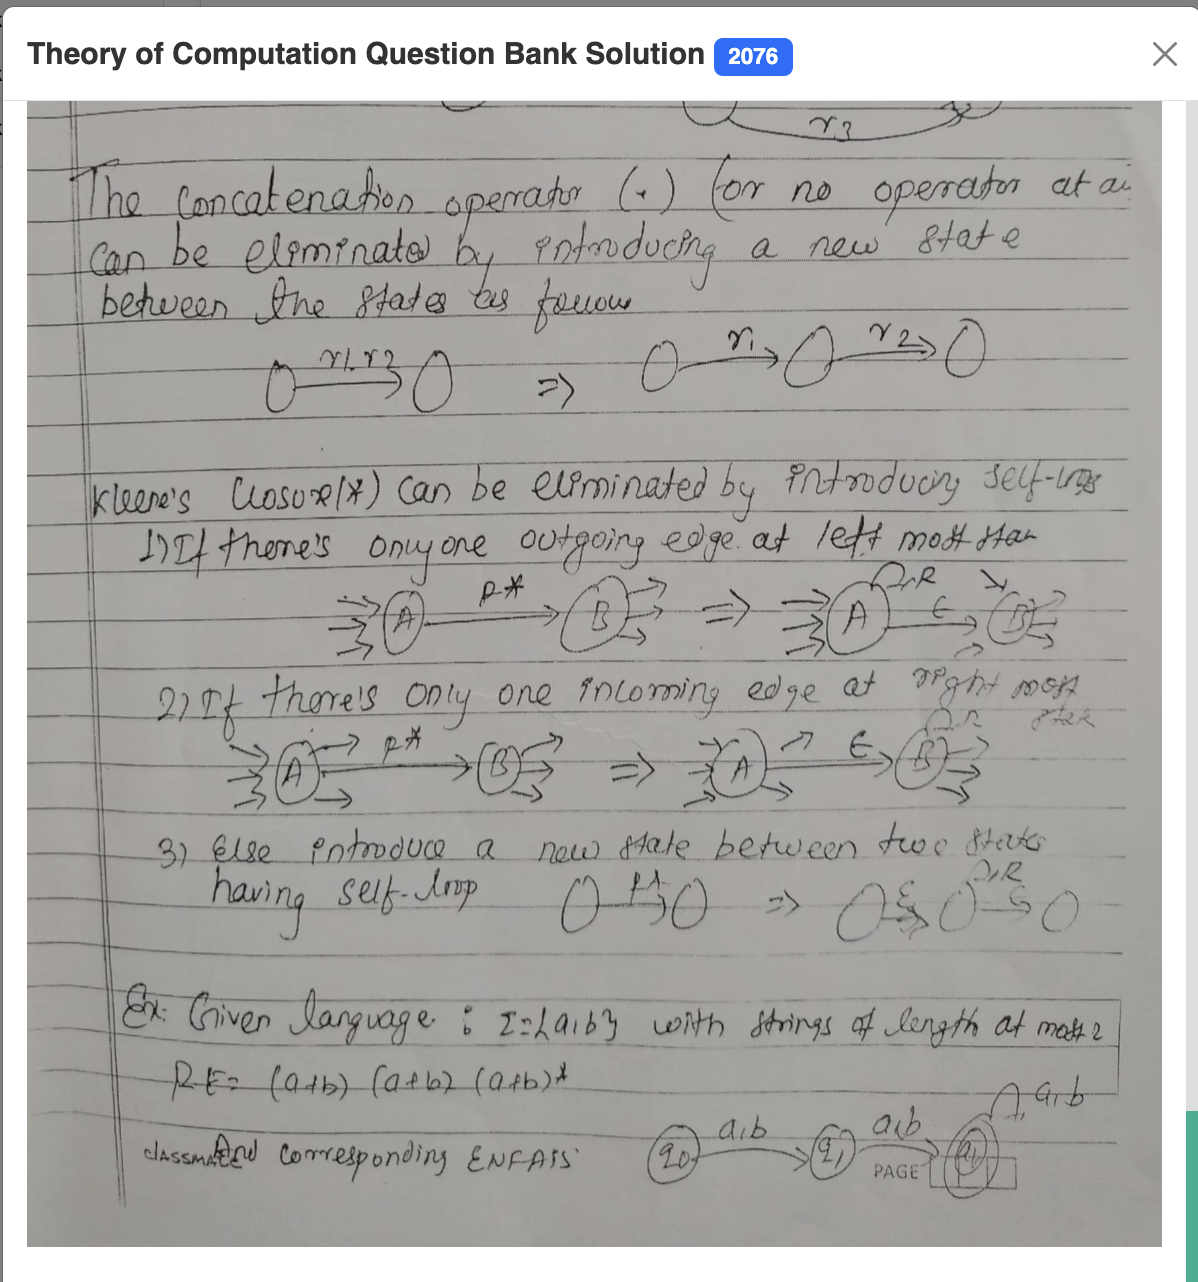 Theory of Computation Question Bank Solution 2076
r2
The Concatenation operator (.) (or no operator at
Can be eliminated by introducing a new state
between the states as follow
r1.r2 => r1 r2
Kleene's Closure(*) can be eliminated by introducing self-loops
1) If there's only one outgoing edge at left most state
A R* B => A R ε B
2) If there's only one incoming edge at right most
state
A R* B => A ε B R
3) Else introduce a new state between two states
having self-loop R* => ε R ε
Ex: Given language : Σ={a,b} with strings of length at most 2
RE= (a+b) (a+b) (a+b)*
a,b
And corresponding ENFA is: q0 a,b q1 a,b
CLASSMATE PAGE